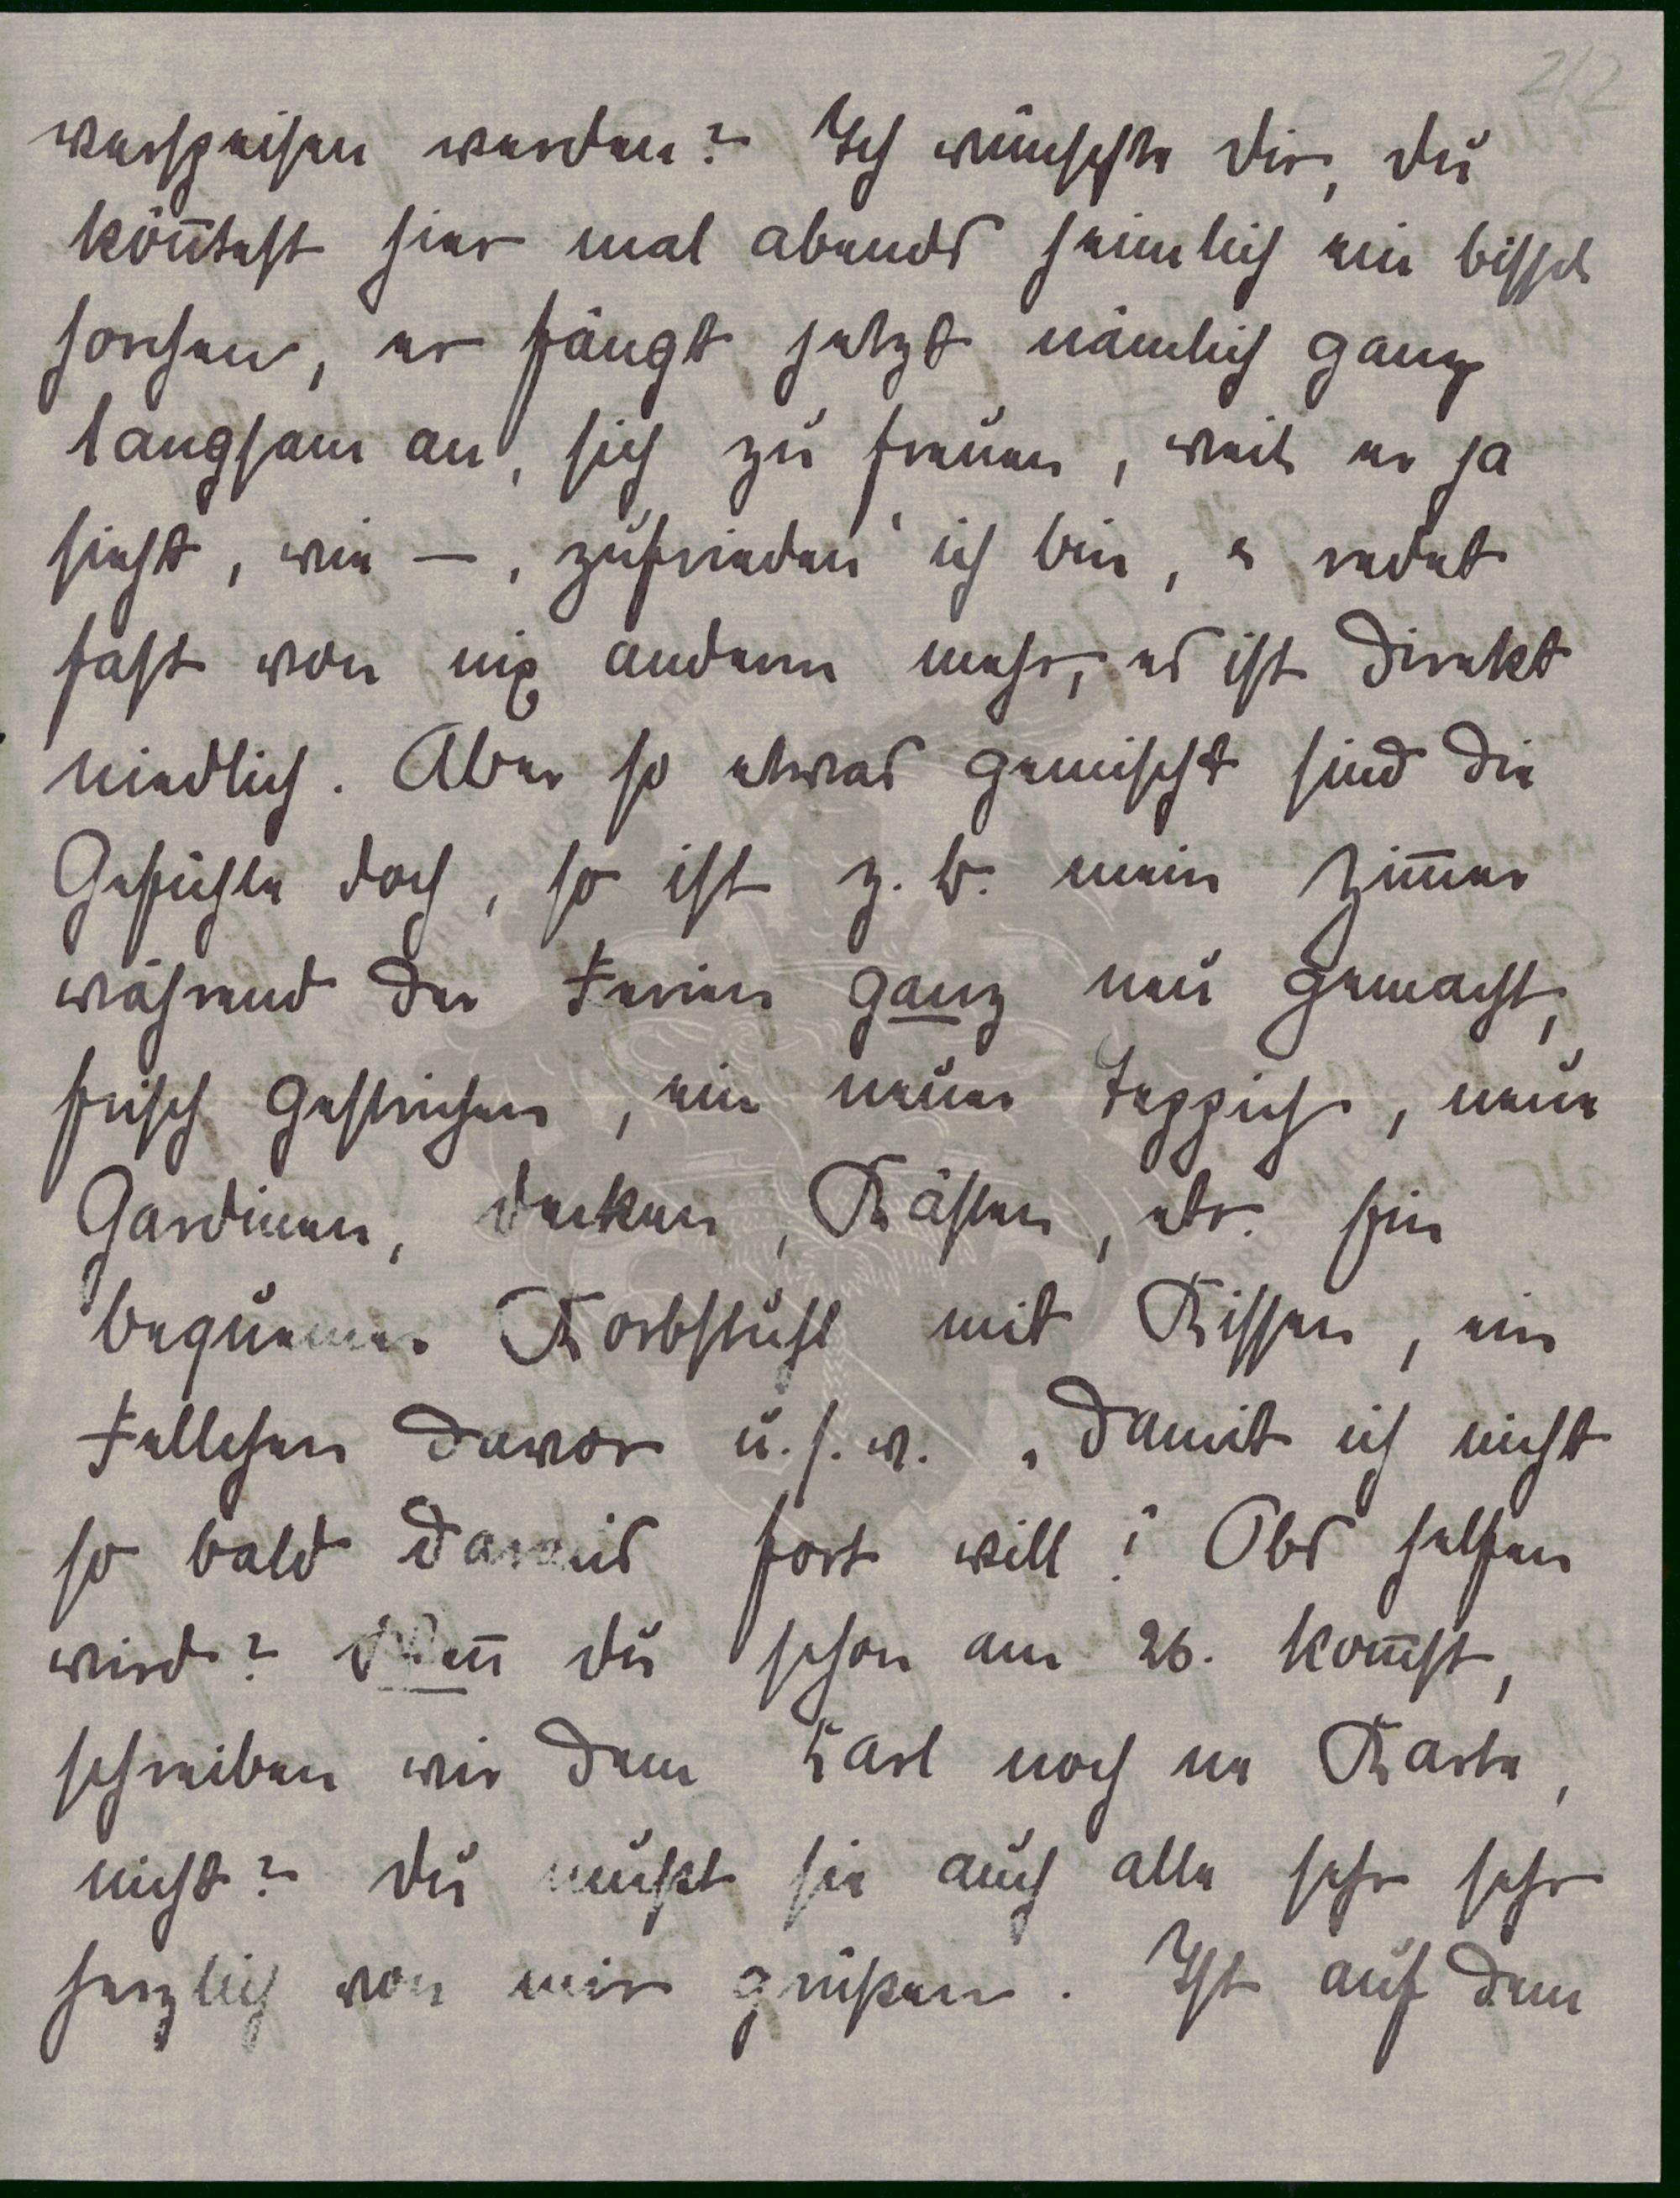 2/2
verspeisen werden? Ich wünschte dir, du
kön̅test hier mal abends heimlich ein bissch
horchen, er fängt jetzt nämlich ganz
langsam an, sich zu freuen, weil er ja
sieht, wie — „zufrieden“ ich bin, er redet
fast von nix anderm mehr, es ist direkt
niedlich. Aber so etwas gemischt sind die
Gefühle doch, so ist z. b. mein Zim̅er
während der Ferien ganz neu gemacht,
frisch gestrichen, ein neuer Teppich, neue
Gardinen, decken, Kästen, etc. Ein
bequemer Korbstuhl mit Kissen, ein
Fellchen davor u. s. w. „damit ich nicht
so bald daraus fort will“! Obs helfen
wird? Wen̅ du schon am 26. kom̅st,
schreiben wir dem Karl noch ne Karte,
nicht? du mußt sie auch alle sehr sehr
herzlich von mir grüßen. Ist auf dem